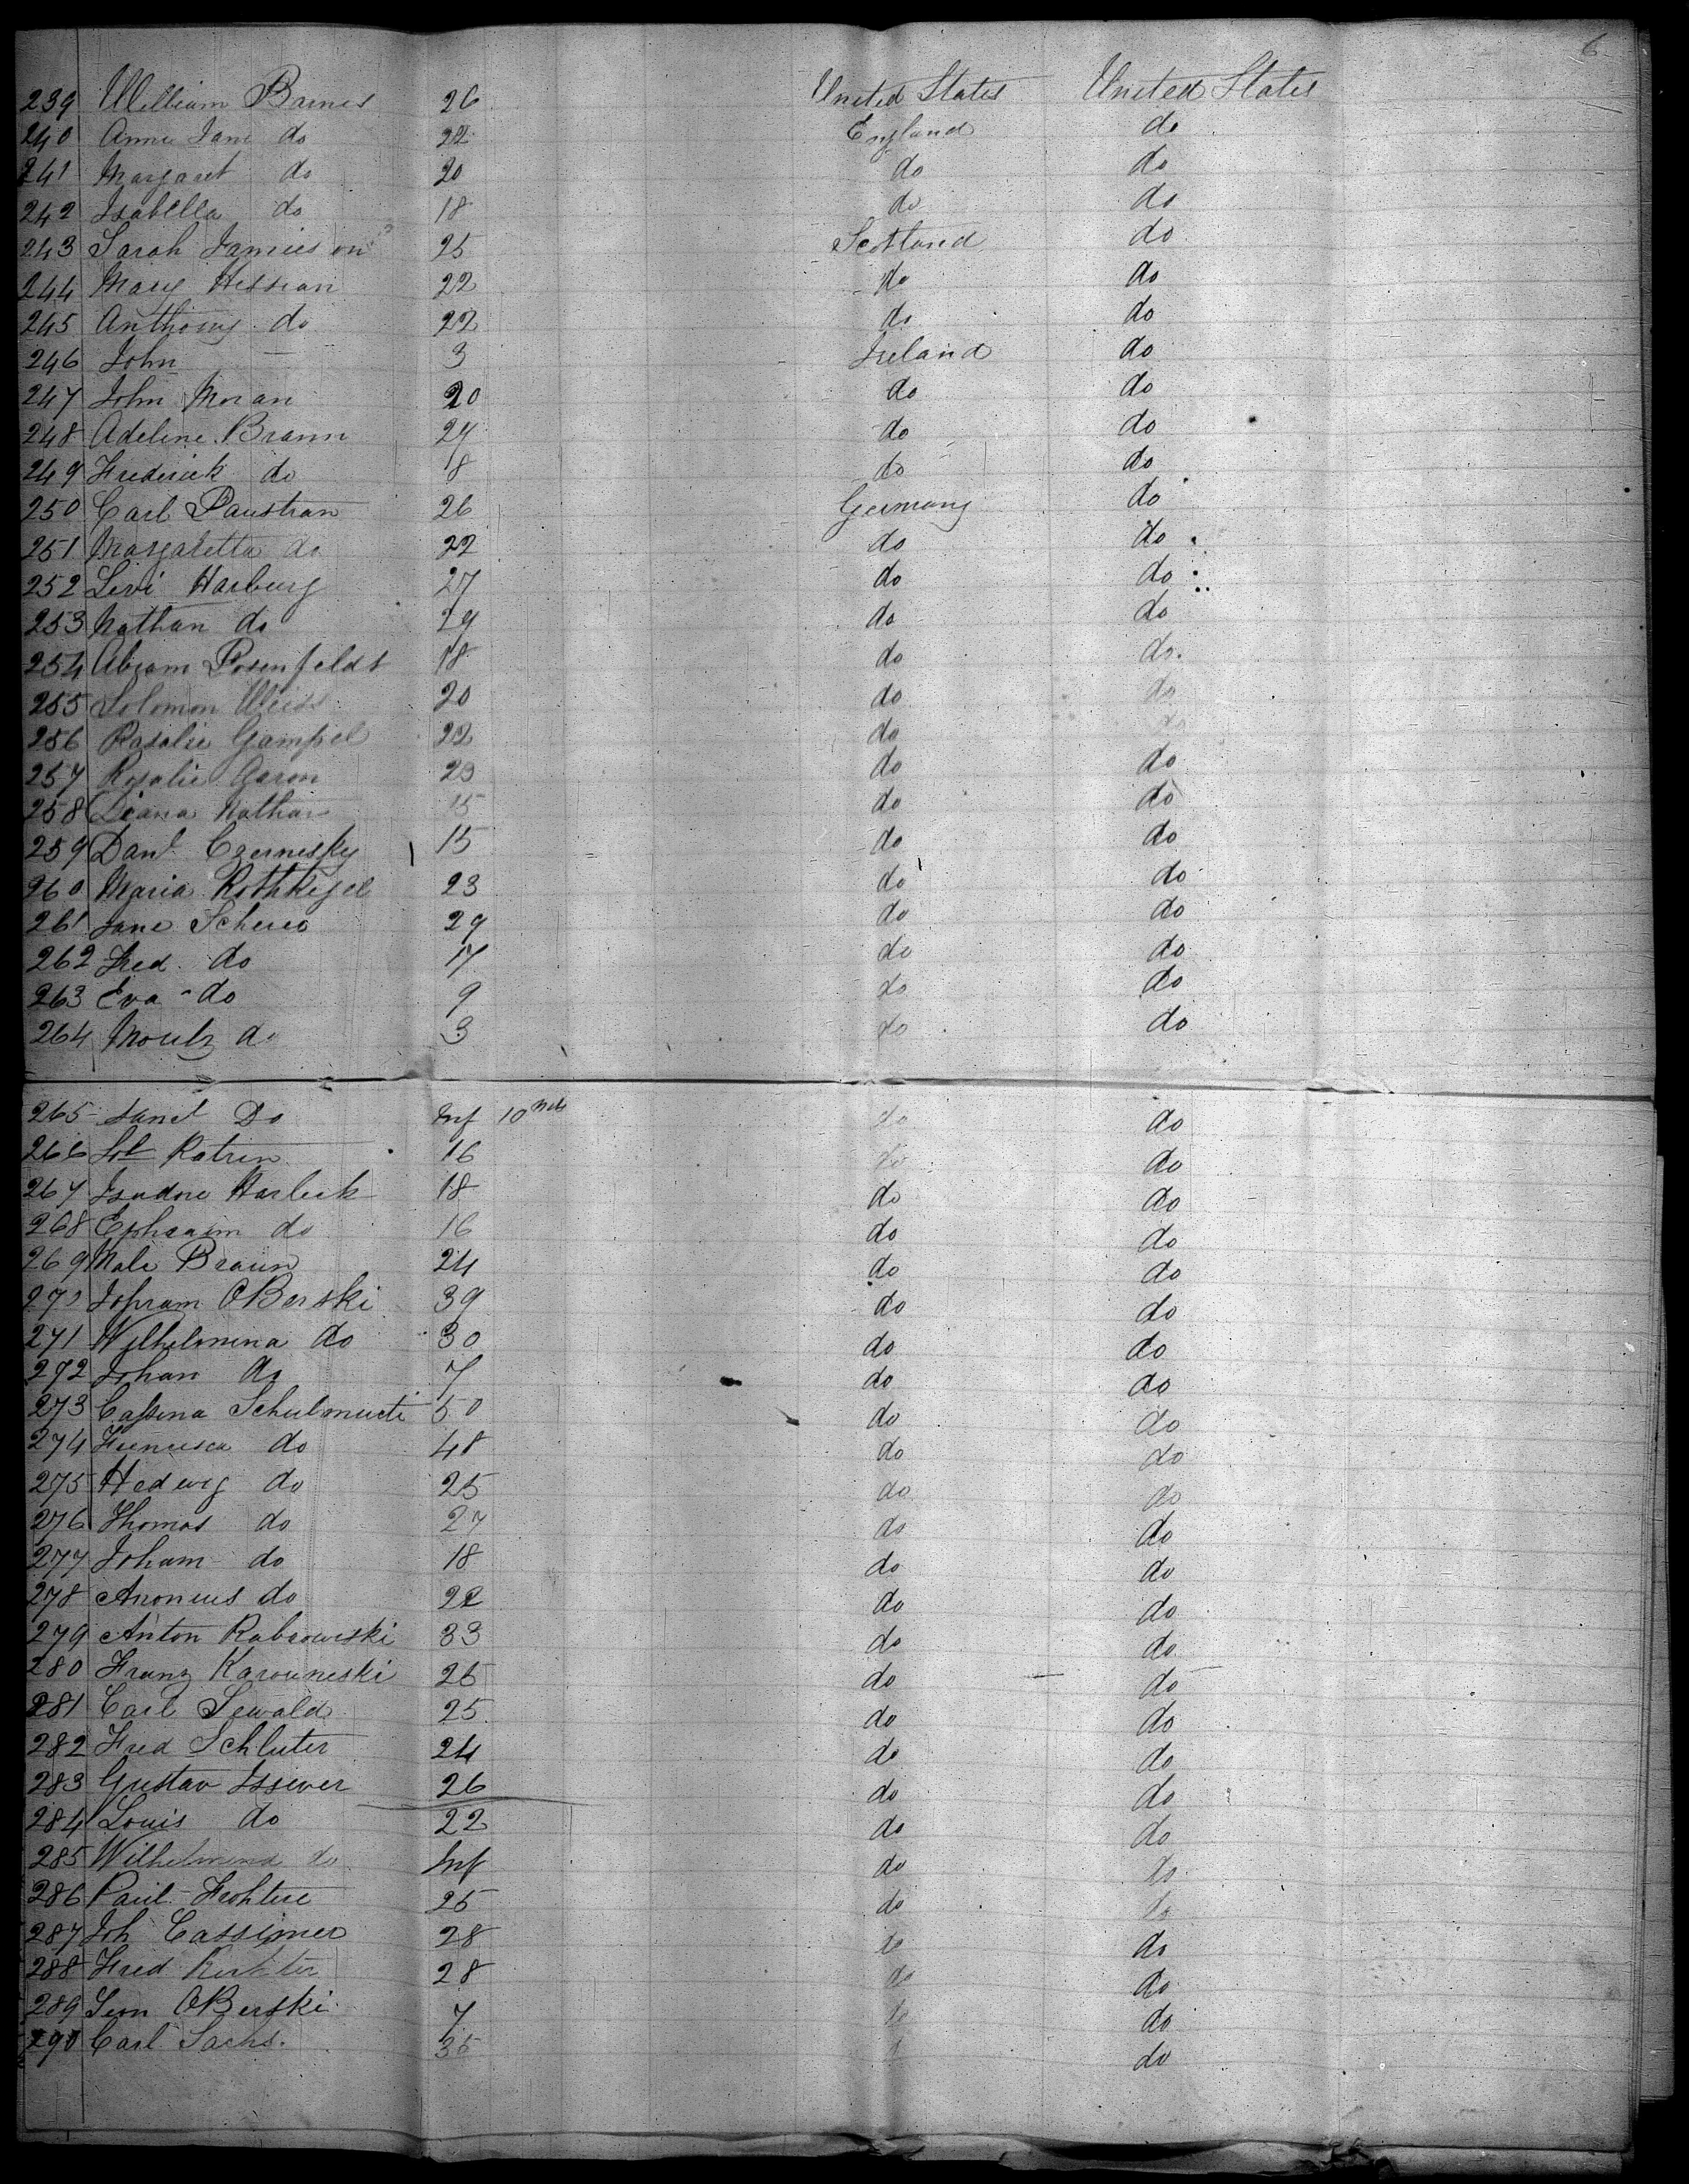 6
239 William Barnes 26 United States United States
240 Anne Jane do 22 England do
241 Margaret do 20 do do
242 Isabella do 18 do do
243 Sarah Jamieson 25 Scotland do
244 Mary Hession 22 do do
245 Anthony do 22 do do
246 John 3 Ireland do
247 John Moran 20 do do
248 Adeline Braun 24 do do
249 Frederick do 18 do do
250 Carl Paustian 26 Germany do
251 Margaretta do 22 do do
252 Levi Harburg 27 do do
253 Nathan do 29 do do
254 Abram Rosenfeldt 18 do do
255 Solomon Weiss 20 do do
256 Rosalie Gampel 22 do do
257 Rosalie Garon 23 do do
258 Diana Nathan 15 do do
259 Danl Czernesky 15 do do
260 Maria Rothkegel 23 do do
261 Jane 29 do do
262 Fred do 17 do do
263 Eva do 9 do do
264 do 3 do do
265 Do Inf 10 mths do do
266 Katrin 16 do do
267 Isadore 18 do do
268 Ephraim do 16 do do
269 Male Braun 24 do do
270 OBerski 39 do do
271 Wilhelmina do 30 do do
272 Johan do 7 do do
273 50 do do
274 do 48 do do
275 Hedwig do 25 do do
276 Thomas do 27 do do
277 Joham do 18 do do
278 do 22 do do
279 Anton Rabrowski 33 do do
280 Franz Karouneski 26 do do
281 Carl Sewald 25 do do
282 Fred Schluter 24 do do
283 Gustav Issiver 26 do do
284 Louis do 22 do do
285 Wilhelmina do Inf do do
286 Paul 25 do do
287 Joh Cassimer 28 do do
288 Fred 28 do do
289 OBerski 7 do do
290 Carl Sachs. 35 do